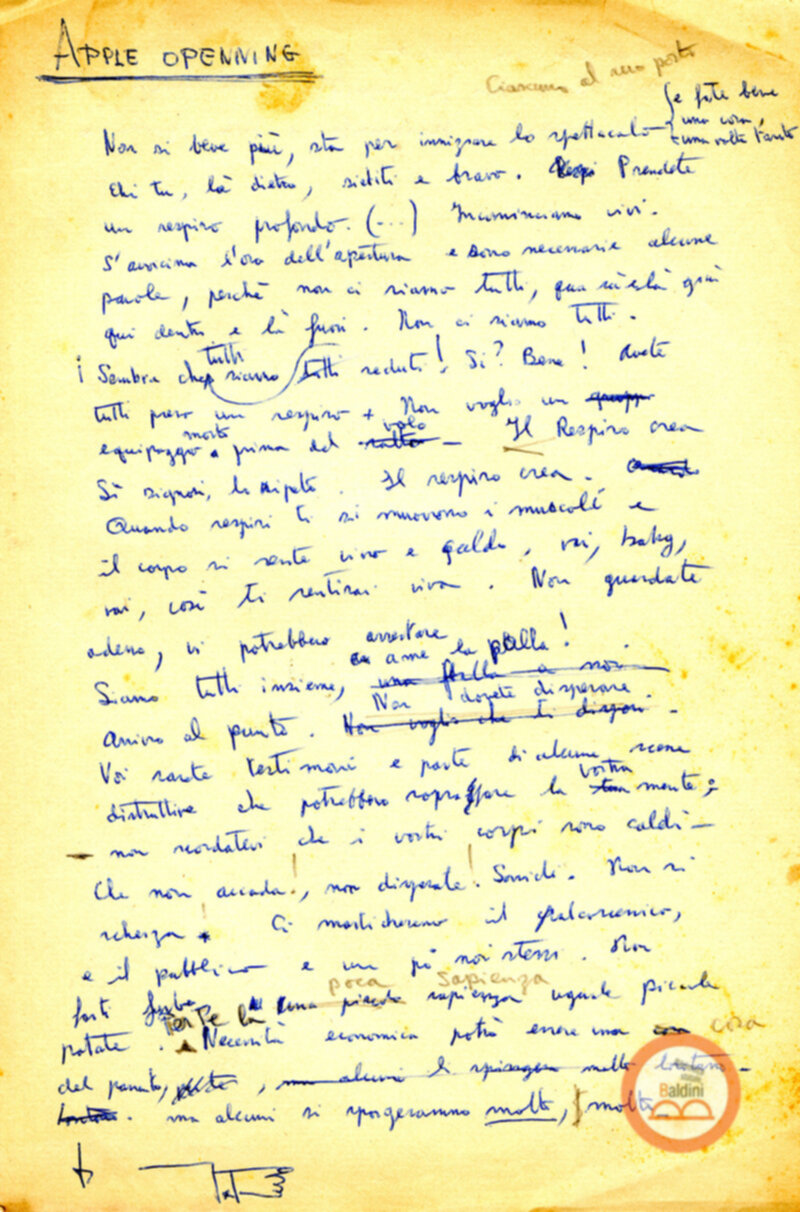 APPLE OPENNING
Ciascuno al suo posto
e fate bene
una cosa,
una volta tanto
Non si beve più, sta per iniziare lo spettacolo
Ehi tu, là dietro, siediti e bravo. Prendete
un respiro profondo. (...) Incominciamo vivi.
S'avvicina l'ora dell'apertura e sono necessarie alcune
parole, perchè non ci siamo tutti, qua
qui dentro e là fuori. Non ci siamo tutti.
Sembra che siamo tutti seduti! Sì? Bene! Avete
tutti preso un respiro. Non voglio un
equipaggio morto prima del volo. Il Respiro crea
Sì signori, lo ripeto. Il respiro crea.
Quando respiri ti si muovono i muscoli e
il corpo si sente vivo e caldo, vai, baby,
vai, così ti sentirai viva. Non guardate
adesso, vi potrebbero arrestare
Siamo tutti insieme, a me la palla!
una palla a noi
Arrivo al punto. Non dovete disperare.
Non voglio che ti disperi.
Voi sarete testimoni e parte di alcune scene
distruttive che potrebbero sopraffare la vostra mente;
non scordatevi che i vostri corpi sono caldi—
Che non accada!, non disperate! Sorridi. Non si
scherza! Ci mastichereno il palcoscenico,
e il pubblico e un pò noi stessi. Non
poca sapienza
una piccola sapienza uguale piccole
patate. Necessità economica potrà essere una cosa
del passato, ma alcuni si spingono molto lontano.
ma alcuni si sporgeranno molto, molto
Baldini